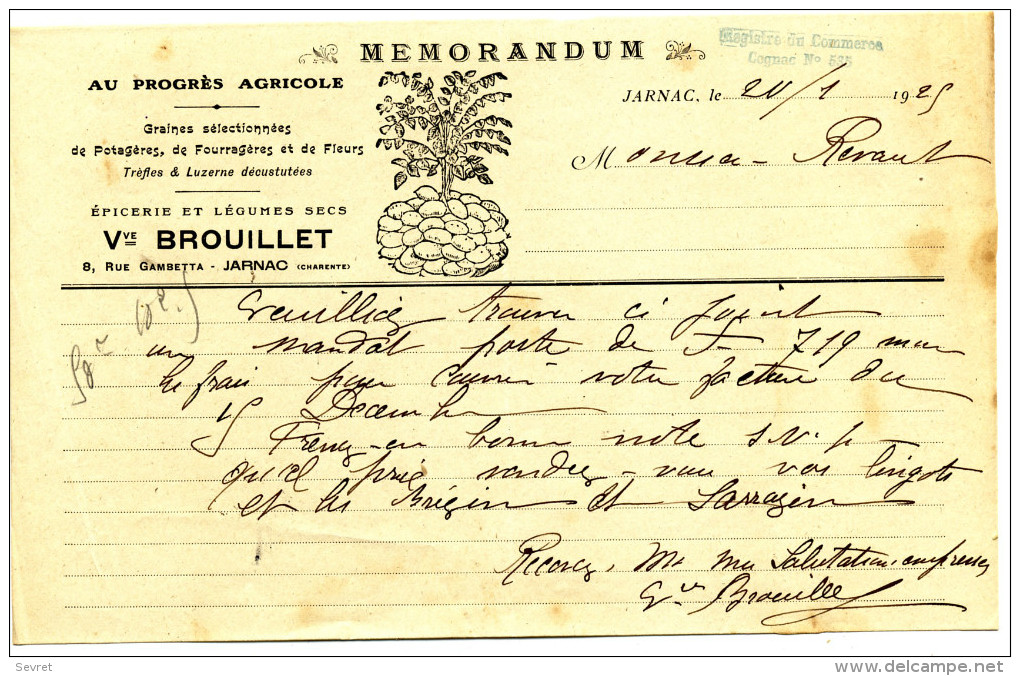 MEMORANDUM
Registre du Commerce
Cognac Nº 535
AU PROGRÈS AGRICOLE
JARNAC, le 20/1 1925
Graines sélectionnées
de Potagères, de Fourragères et de Fleurs
Trèfles & Luzerne décustutées
Monsieur Revaut
ÉPICERIE ET LÉGUMES SECS
Vve BROUILLET
8, RUE GAMBETTA - JARNAC (CHARENTE)
Veuillez trouver ci joint
un mandat poste de F 719 moin
les frais pour couvrir votre facture du
15 Décembre
Prenez-en bonne note s.v.p
quel prix vendez-vous vos lingots
et les Brézin et Sarrazin
Recevez, Mr mes Salutations empressées
Vve Brouillet
Sevret
delcampe.net